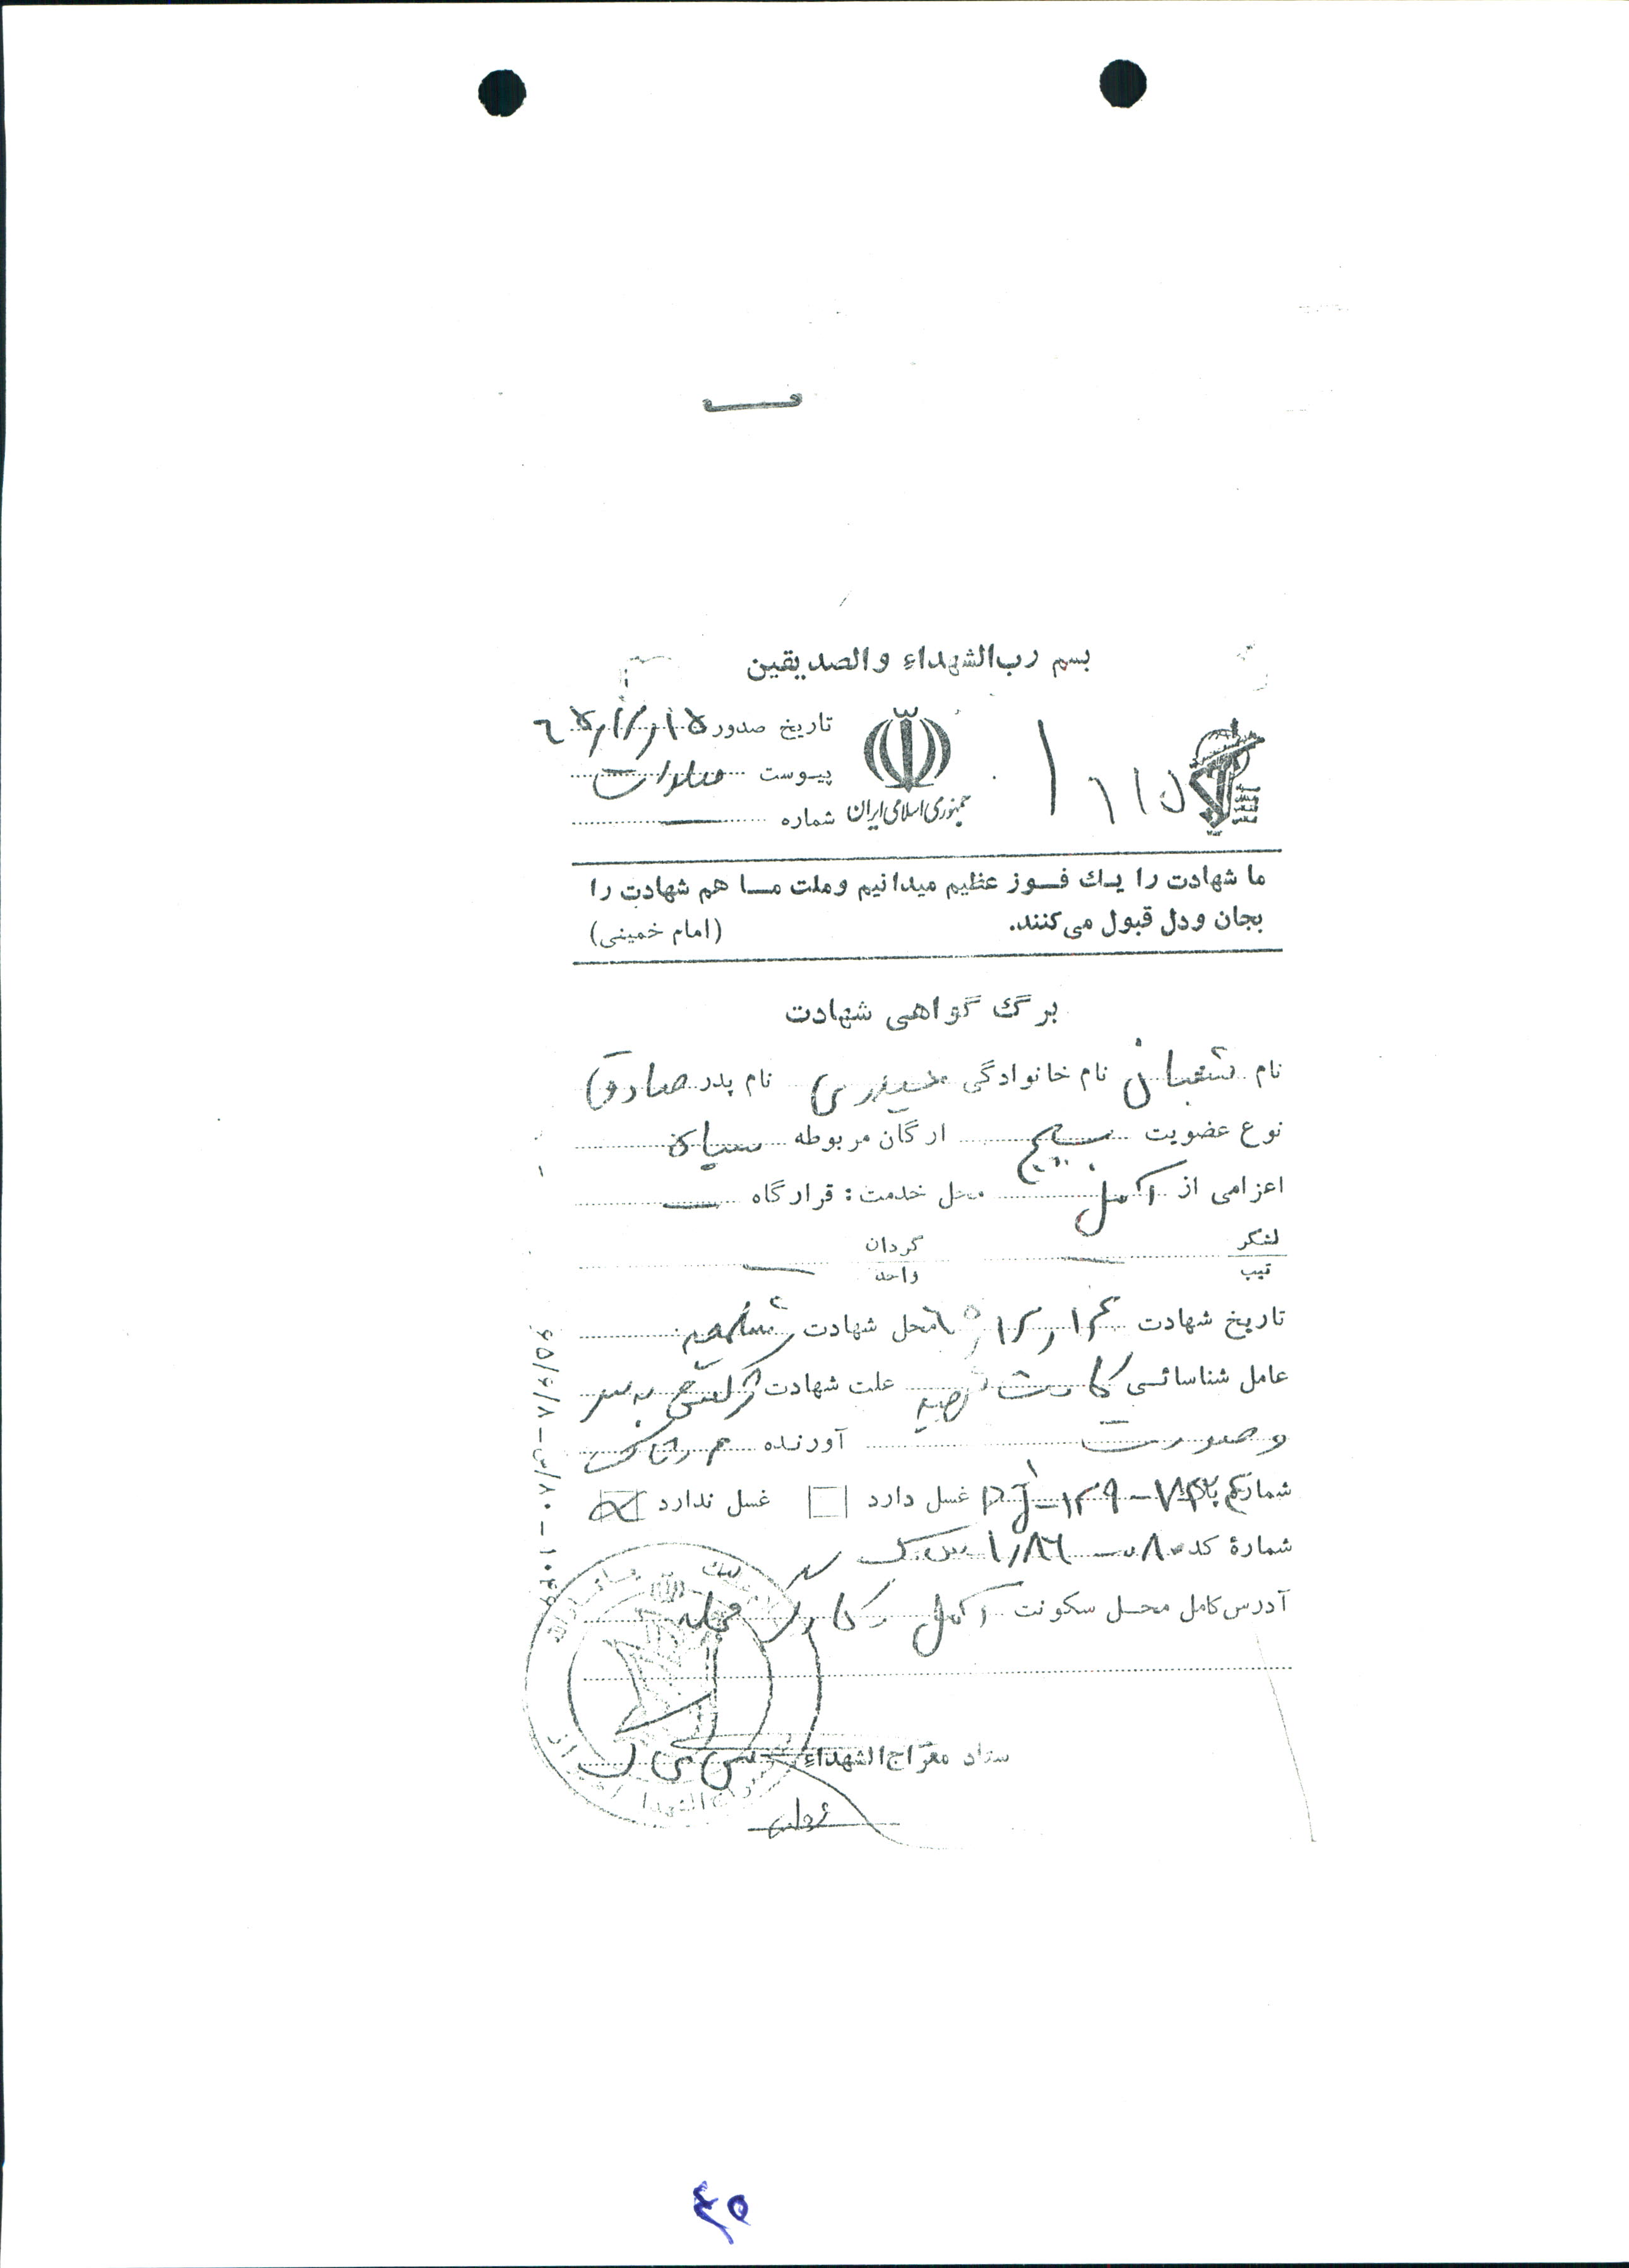 بسم رب‌الشهداء والصدیقین
تاریخ صدور ۶۵/۱۲/۱۵
پیوست
شماره
جمهوری اسلامی ایران
ما شهادت را یك فوز عظیم میدانیم وملت ما هم شهادت را
بجان ودل قبول می‌کنند. (امام خمینی)
برگ گواهی شهادت
نام شعبان نام خانوادگی حیدری نام پدر صادق
نوع عضویت بسیج ارگان مربوطه سپاه
اعزامی از آمل محل خدمت: قرارگاه —
لشکر تیپ — گردان واحد —
تاریخ شهادت ۶۵/۱۲/۱۴ محل شهادت شلمچه
عامل شناسائی کارت علت شهادت ترکش به سر
و صورت آورنده
شماره غسل دارد غسل ندارد
شمارهٔ کد
آدرس کامل محل سکونت آمل محله
ستاد معراج‌الشهداء
۴۵